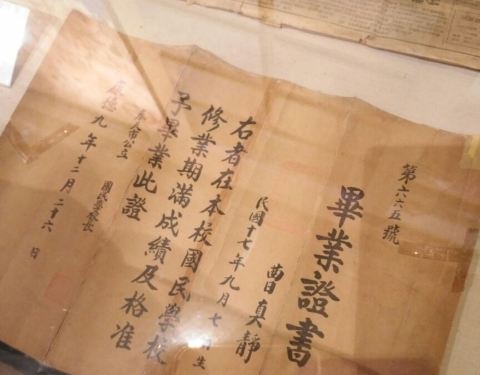 第六六五號
畢業證書
曹真靜
民國十七年九月七日生
右者在本校國民學校
修業期滿成績及格准
予畢業此證
市公立
國民學校長
康德九年十二月二十六日